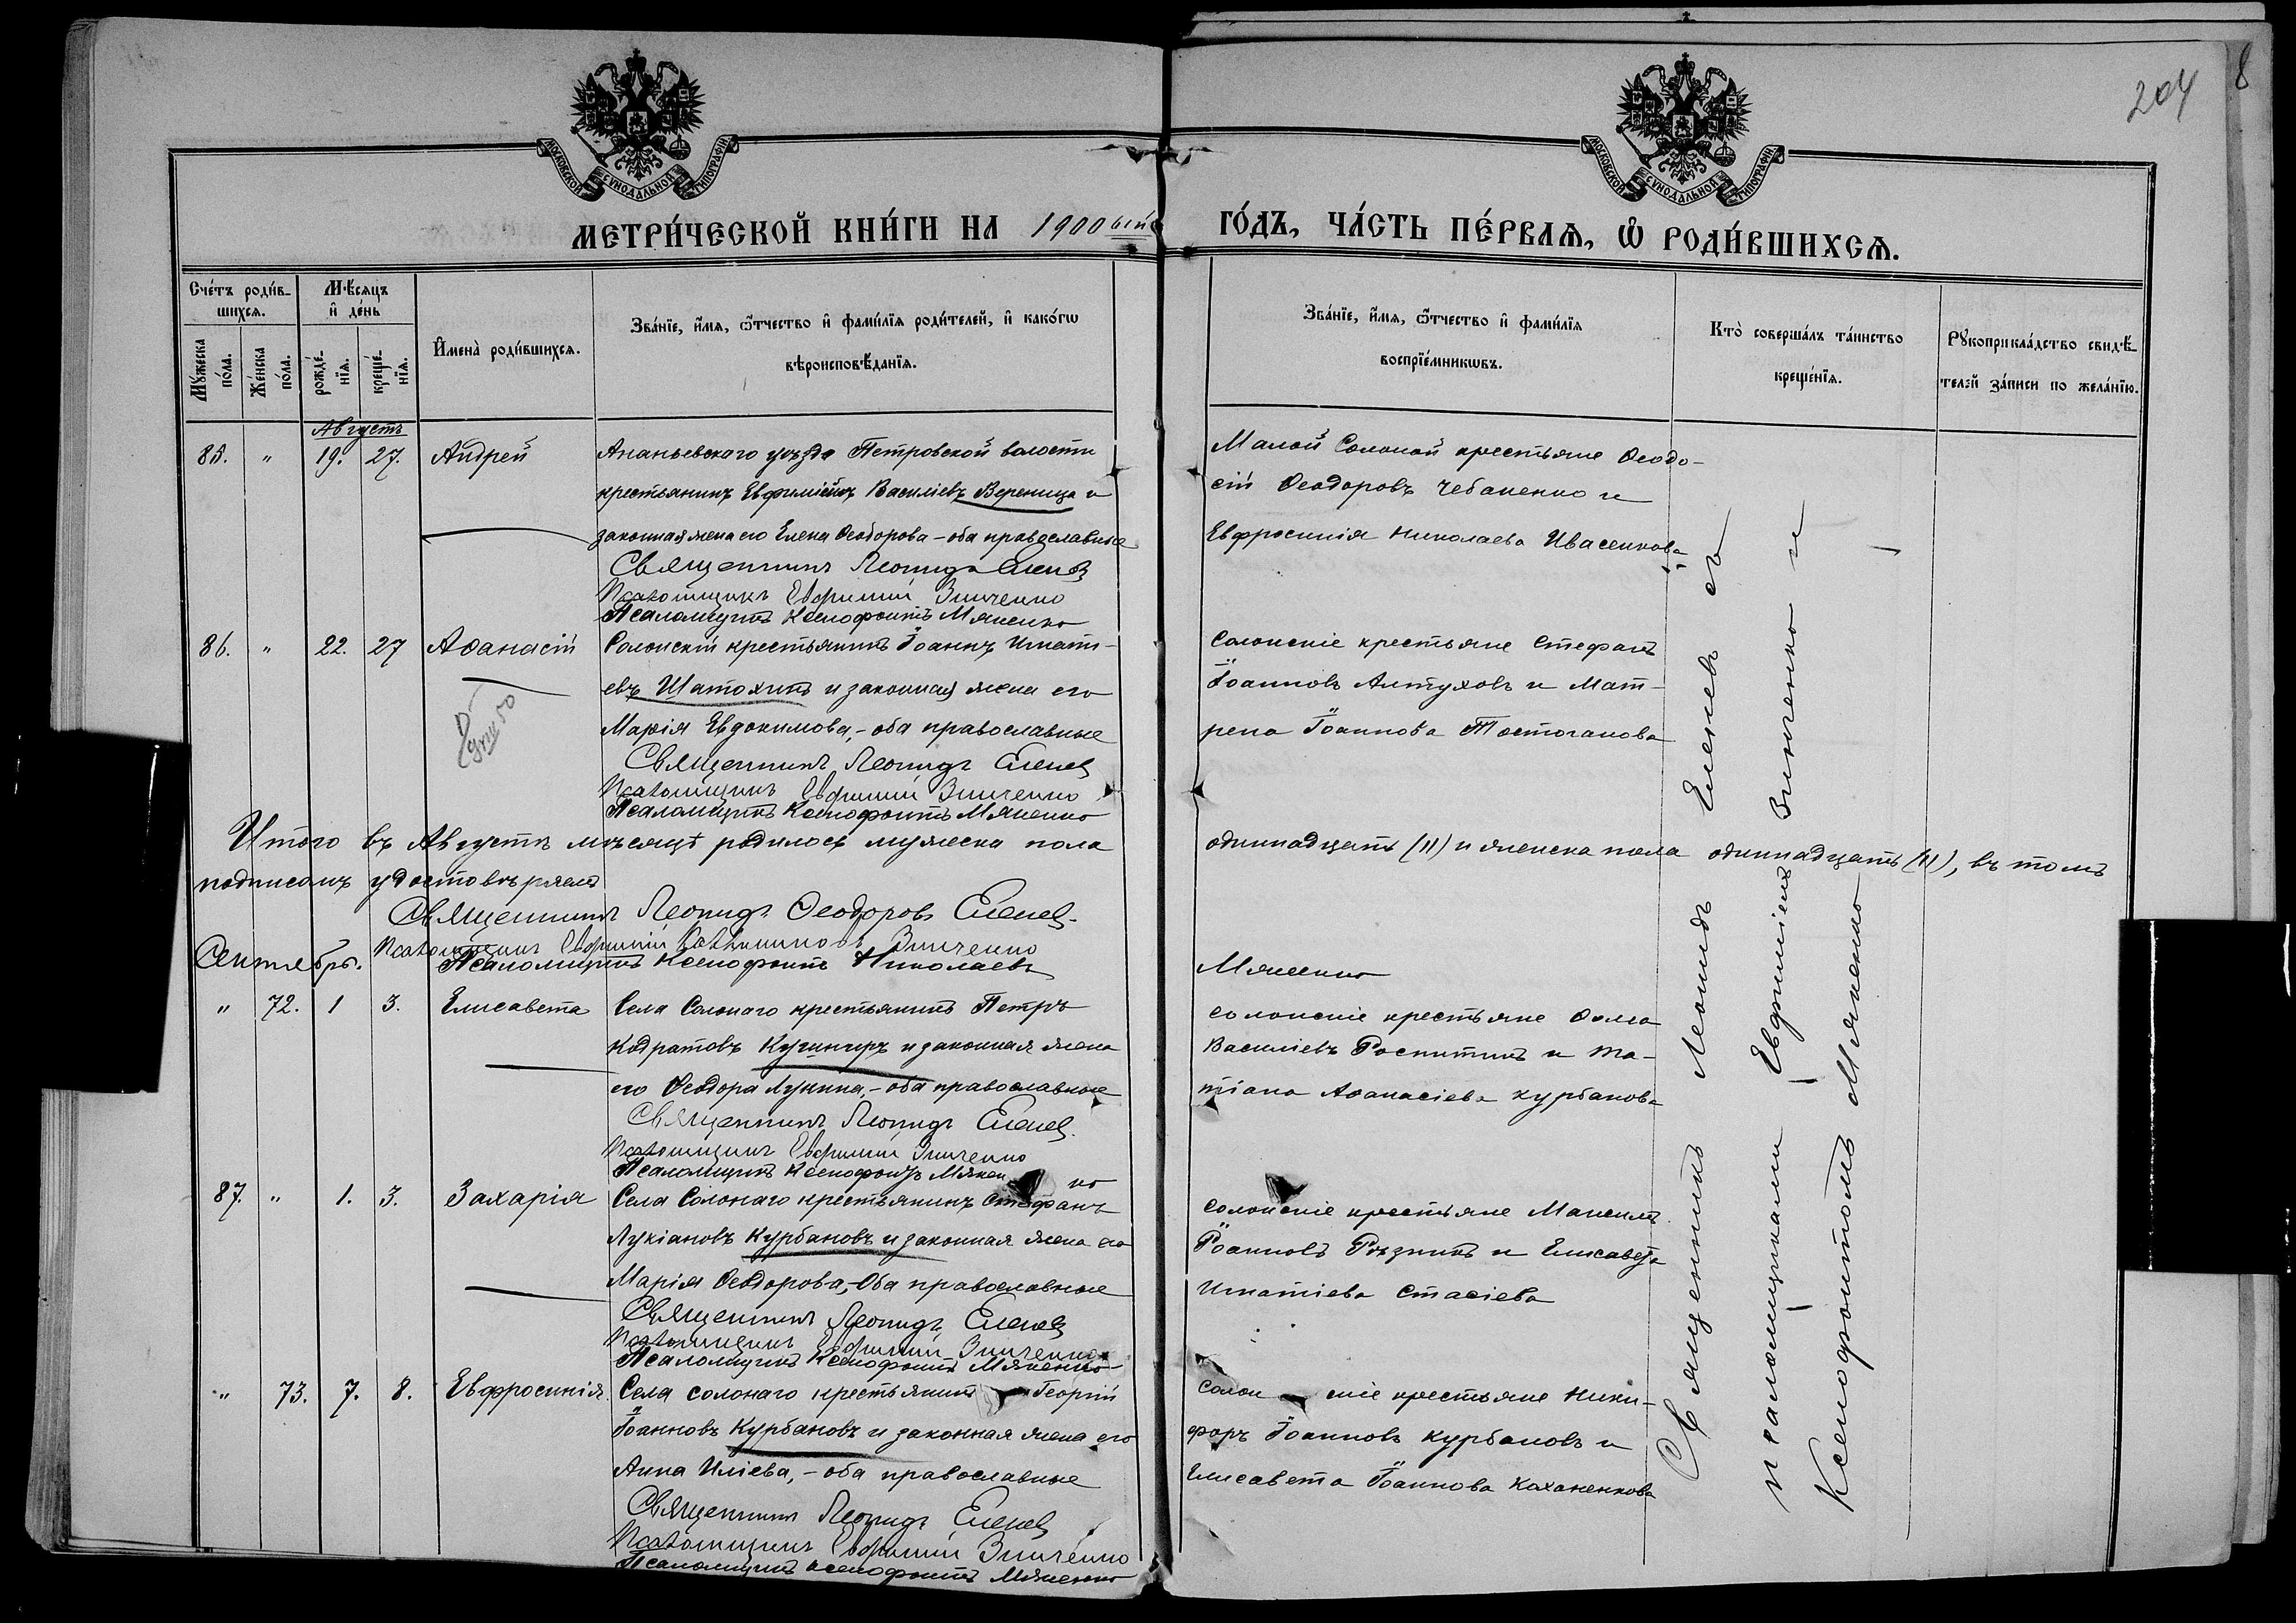 204
8
МОСКОВСКОЙ СѴНОДАЛЬНОЙ ТИПОГРАФІИ
МОСКОВСКОЙ СѴНОДАЛЬНОЙ ТИПОГРАФІИ
МЕТРИ́ЧЕСКОЙ КНИ́ГИ НА 1900 ый
ГО́ДЪ, ЧА́СТЬ ПЕ́РВАѦ, Ѽ РОДИ́ВШИХСѦ.
Сче́тъ роди́в-
шихсѧ.
Мꙋ́жеска по́ла.
Же́нска по́ла.
Мѣ́сяцъ и҆ де́нь
рожде́-нїѧ.
креще́-нїѧ.
И҆мена̀ роди́вшихсѧ.
Зва́нїе, и҆́мѧ, ѻ҆́тчество и҆ фами́лїѧ роди́телей, и҆ како́гѡ
вѣроисповѣ́данїѧ.
Зва́нїе, и҆́мѧ, ѻ҆́тчество и҆ фами́лїѧ
воспрїе́мникѡвъ.
Кто̀ соверша́лъ та́инство
креще́нїѧ.
Рꙋкоприкла́дство свидѣ́-
телей за́писи по жела́нїю.
Августъ
85. " 19. 27. Андрей
Ананьевскаго уѣзда Петровской волости
крестьянинъ Евфимій Василіевъ Вереница и
законная жена его Елена Ѳеодорова - оба православные
Священникъ Леонидъ Еленев
Псаломщикъ Евфимій Зинченко
Псаломщикъ Ксенофонтъ Мяненко
Малой Солоной крестьяне Ѳеодо-
сій Ѳеодоровъ Чебаненко и
Евфросинія Николаева Ивасенкова
86. " 22. 27 Аѳанасій
Солонскій крестьянинъ Іоаннъ Игнати-
евъ Шатохинъ и законная жена его
Марія Евдокимова, - оба православные
Священникъ Леонидъ Еленев
Псаломщикъ Евфимій Зинченко
Псаломщикъ Ксенофонтъ Мяненко
Солонскіе крестьяне Стефанъ
Іоанновъ Алтуховъ и Мат-
рена Іоаннова
Итого въ Августѣ мѣсяцѣ родилось мужеска пола одиннадцать (11) и женска пола одиннадцать (11), въ томъ
подписомъ удостовѣряемъ
Священникъ Леонидъ Ѳеодоровъ Еленев
Псаломщикъ Евфимій Зинченко
Псаломщикъ Ксенофонтъ Николаевъ Мяненко
Сентябрь.
" 72. 1 3. Елисавета
Села Солонаго крестьянинъ Петръ
Кодратовъ и законная жена
его Ѳеодора Лукина, - оба православные
Священникъ Леонидъ Еленев
Псаломщикъ Евфимій Зинченко
Псаломщикъ Ксенофонтъ Мяненко
Солонскіе крестьяне Ѳома
Василіевъ и Та-
тіана Аѳанасіева Курбанова
87. " 1. 3. Захарія
Села Солонаго крестьянинъ Стефанъ
Лукіановъ Курбановъ и законная жена его
Марія Ѳеодорова, - Оба православные
Священникъ Леонидъ Еленев
Псаломщикъ Евфимій Зинченко
Псаломщикъ Ксенофонтъ Мяненко
Солонскіе крестьяне Максимъ
Іоанновъ Рѣзникъ и Елисавета
Игнатіева Стасіева
" 73. 7. 8. Евфросинія.
Села Солонаго крестьянинъ Георгій
Іоанновъ Курбановъ и законная жена его
Анна Иліева, - оба православные
Священникъ Леонидъ Еленев
Псаломщикъ Евфимій Зинченко
Псаломщикъ Ксенофонтъ Мяненко
Солонскіе крестьяне Ники-
форъ Іоанновъ Курбановъ и
Елисавета Іоаннова Каханенкова
Священникъ Леонидъ Еленевъ съ
псаломщиками Евфиміемъ Зинченко и
Ксенофонтомъ Мяненко